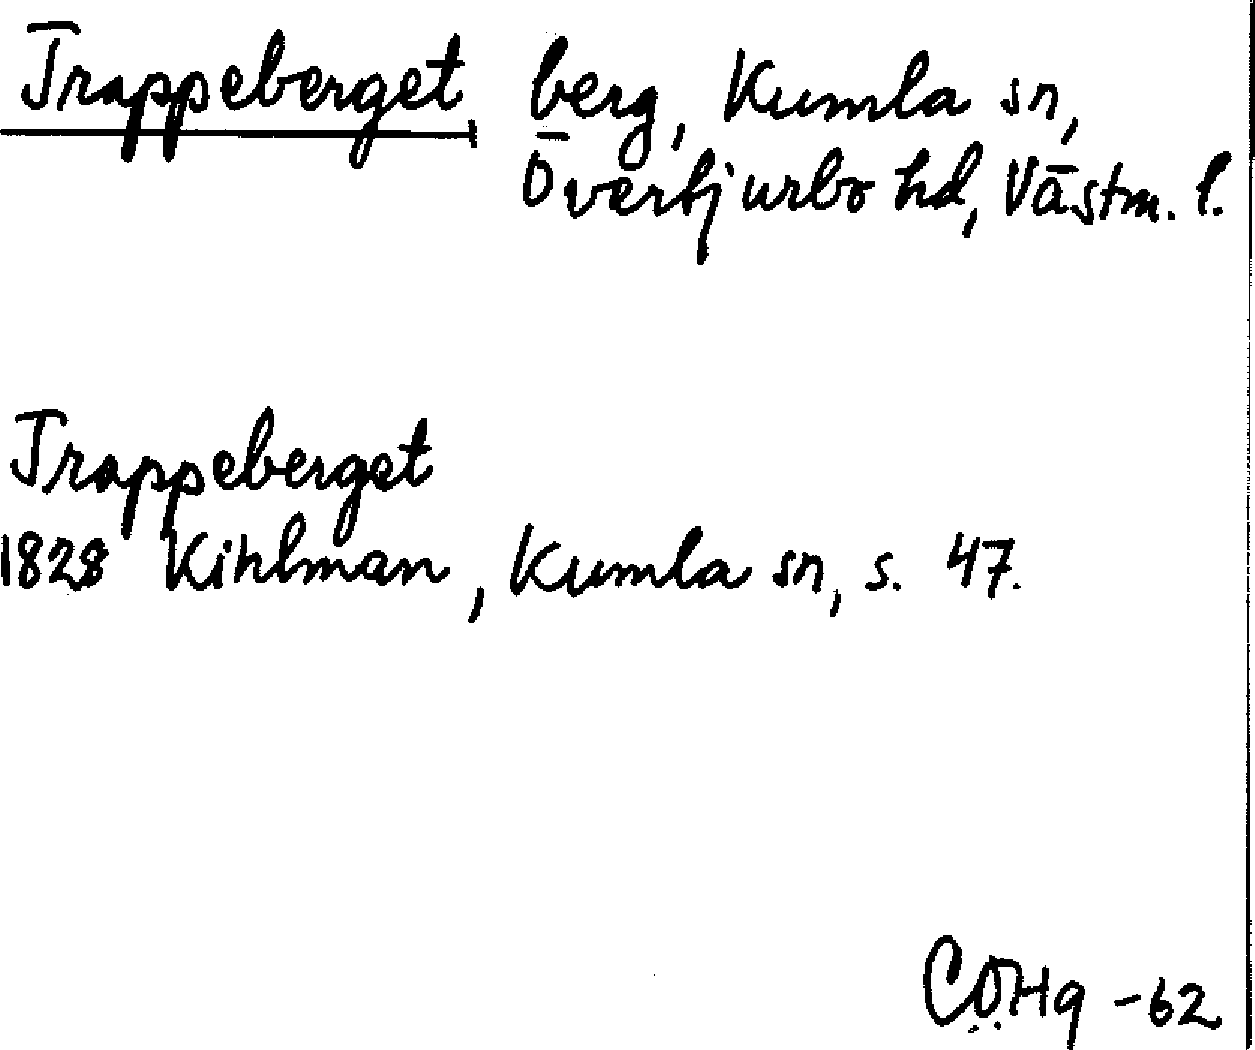 Trappeberget, berg, Kumla sn,
Övertjurbo hd, Västm. l.
Trappeberget
1828 Kihlman, Kumla sn, s. 47.
CÖHg -62